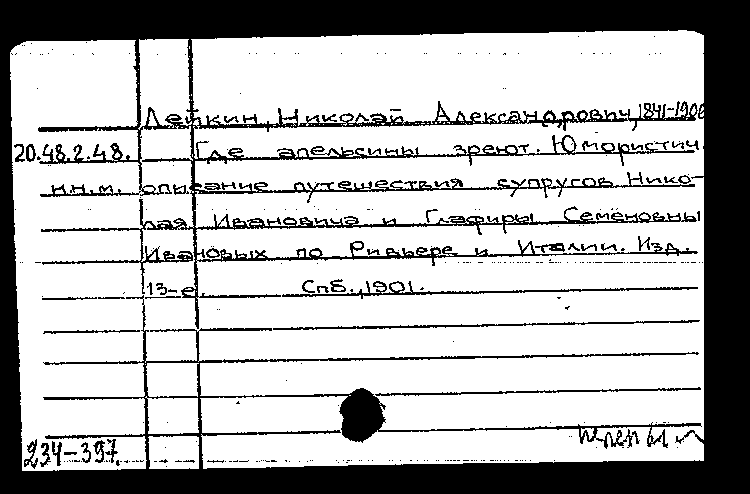 Лейкин, Николай Александрович, 1841-1906
20.48.2.48. Где апельсины зреют. Юмористич.
н.н.м. описание путешествия супругов Нико-
лая Ивановича и Глафиры Семеновны
Ивановых по Ривьере и Италии. Изд.
13-е. Спб., 1901.
234-397.